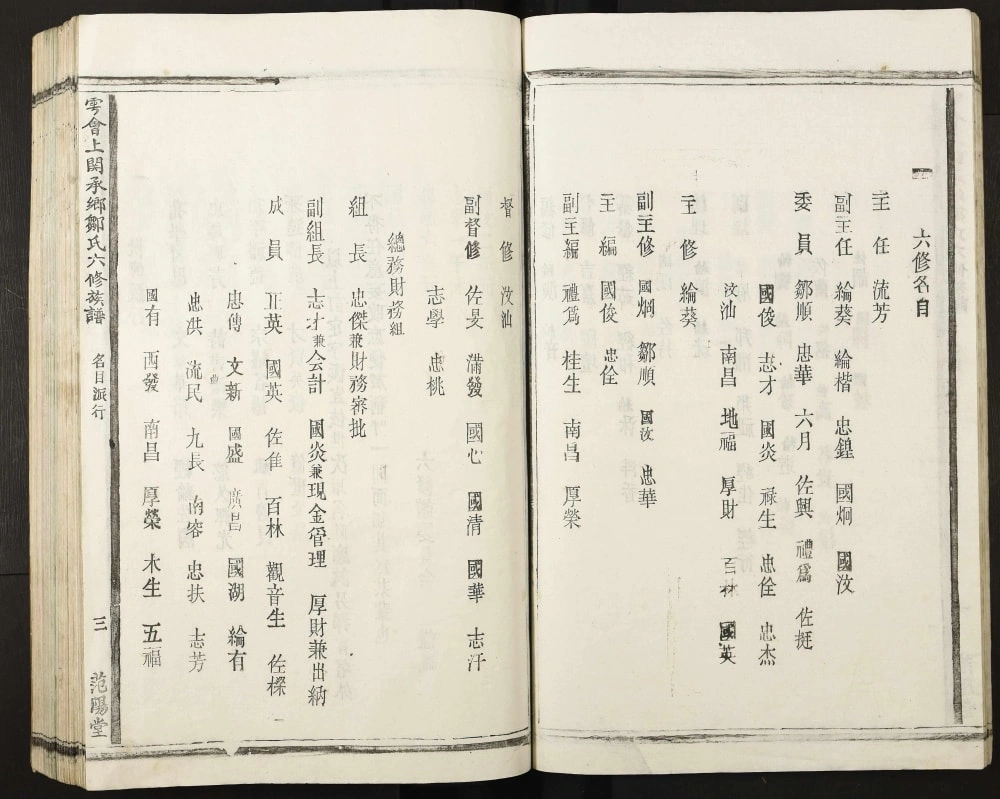 六修名目
主任 流芳
副主任 綸葵 綸楷 忠鍠 國炯 國汝
委員 鄒順 忠華 六月 佐興 禮為 佐挺
國俊 志才 國炎 祿生 忠佺 忠杰
汶汕 南昌 地福 厚財 百林 國英
主修 綸葵
副主修 國炯 鄒順 國汝 忠華
主編 國俊 忠佺
副主編 禮為 桂生 南昌 厚榮
督修 汶汕
副督修 佐旻 滿發 國心 國清 國華 志汗
志學 忠桃
總務財務組
組長 忠傑兼財務審批
副組長 志才兼会計 國炎兼現金管理 厚財兼出納
成員 正英 國英 佐隹 百林 觀音生 佐樑
忠傳 文新 國盛 廣昌 國湖 綸有
忠洪 流民 九長 忠扶 志芳
國有 西發 南昌 厚榮 木生 五福
雩會上閔承鄉鄒氏六修族譜 名目派行 三 范陽堂